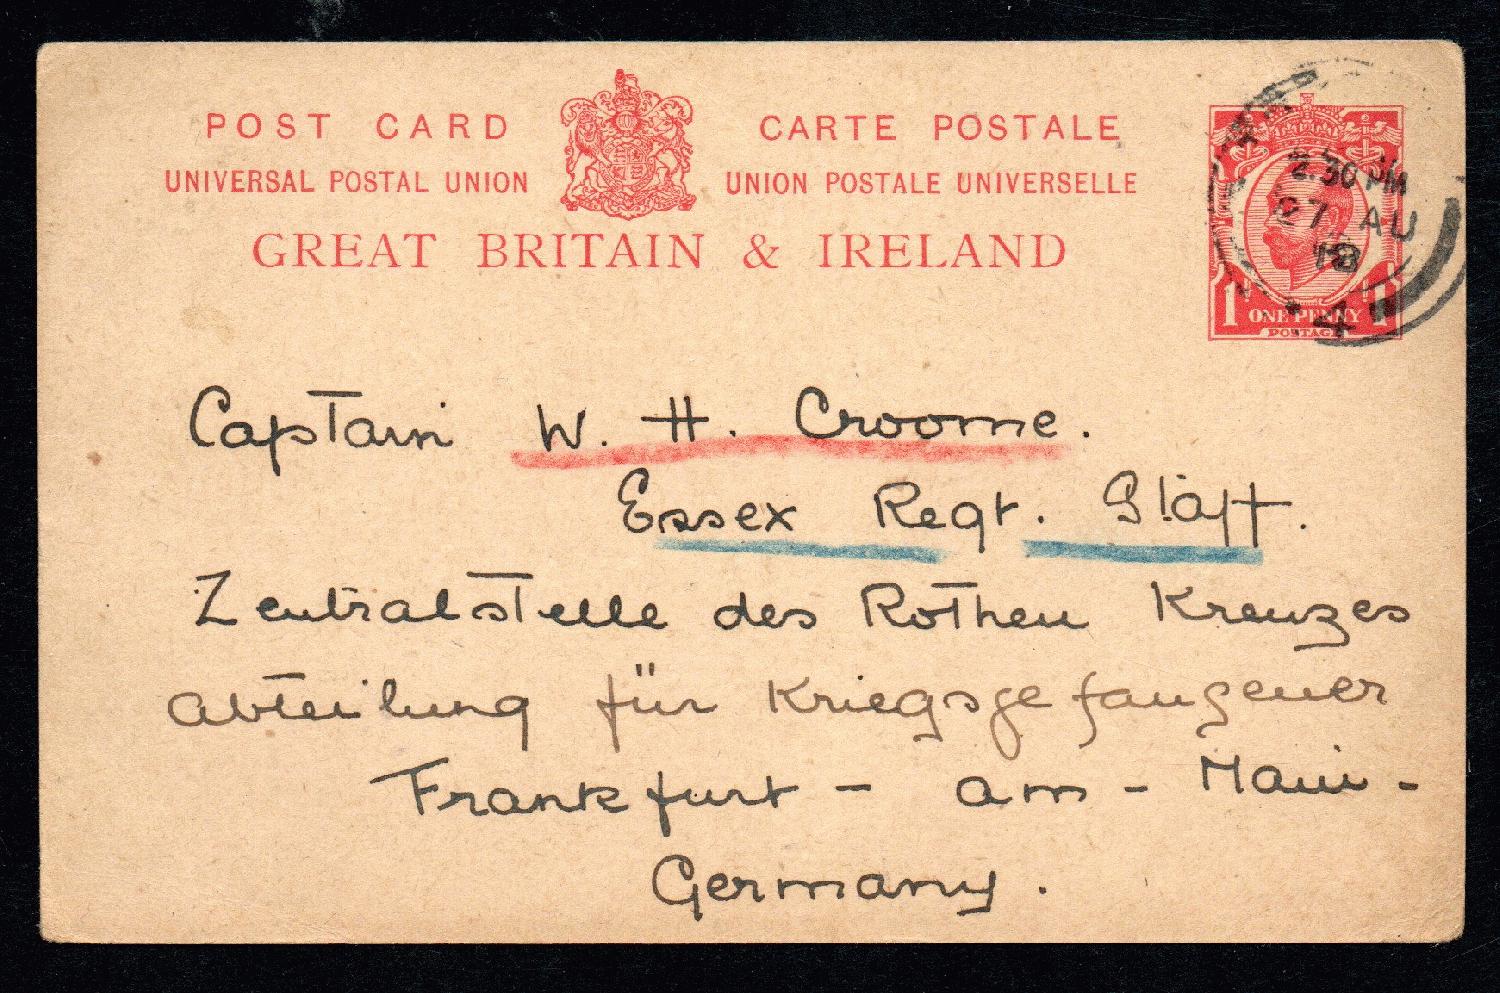 POST CARD CARTE POSTALE
UNIVERSAL POSTAL UNION UNION POSTALE UNIVERSELLE
GREAT BRITAIN & IRELAND
2.30 PM
27 AU
18
4
1 ONE PENNY 1
POSTAGE
Captain W. H. Croome.
Essex Regt. Staff.
Zentralstelle des Rothen Kreuzes
Abteilung für Kriegsgefangener
Frankfurt - am - Main -
Germany.